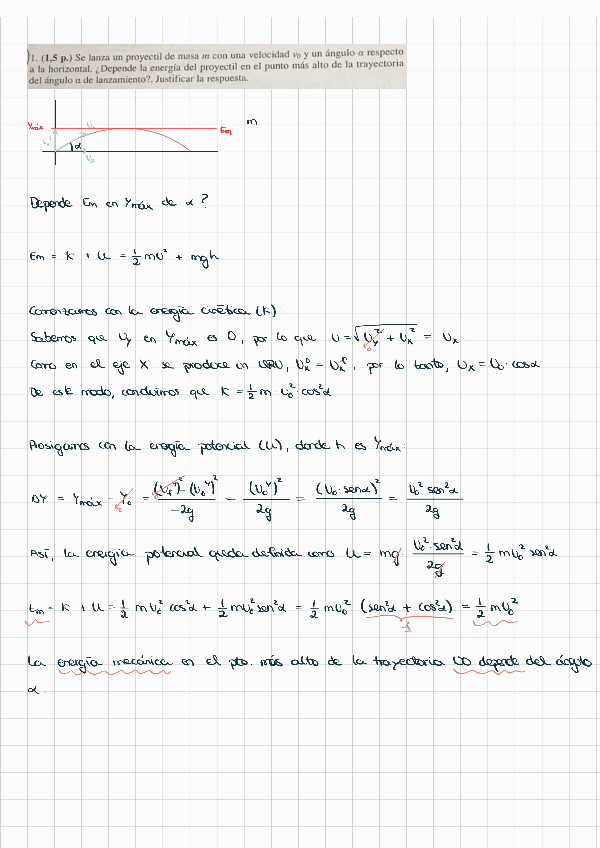 1. (1,5 p.) Se lanza un proyectil de masa m con una velocidad v₀ y un ángulo α respecto
a la horizontal. ¿Depende la energía del proyectil en el punto más alto de la trayectoria
del ángulo α de lanzamiento?. Justificar la respuesta.
Ymáx Em m
α
Vx
Depende Em en Ymáx de α?
Em = K + U = 1/2 mv² + mgh
Comenzamos con la energía cinética (K)
Sabemos que Vy en Ymáx es 0, por lo que V = √(Vy² + Vx²) = Vx
0
Como en el eje X se produce un MRU, Vx⁰ = Vxᶠ, por lo tanto, Vx = V₀ · cosα
De este modo, concluimos que K = 1/2 m · v₀² · cos²α
Prosigamos con la energía potencial (U), donde h es Ymáx:
ΔY = Ymáx - Y₀ = (Vfʸ)² - (V₀ʸ)² / -2g = (V₀ʸ)² / 2g = (V₀ · senα)² / 2g = V₀² sen²α / 2g
Así, la energía potencial queda definida como U = mg · V₀² · sen²α / 2g = 1/2 m V₀² sen²α
Em = K + U = 1/2 m V₀² cos²α + 1/2 m V₀² sen²α = 1/2 m V₀² (sen²α + cos²α) = 1/2 m V₀²
1
La energía mecánica en el pto. más alto de la trayectoria NO depende del ángulo
α.